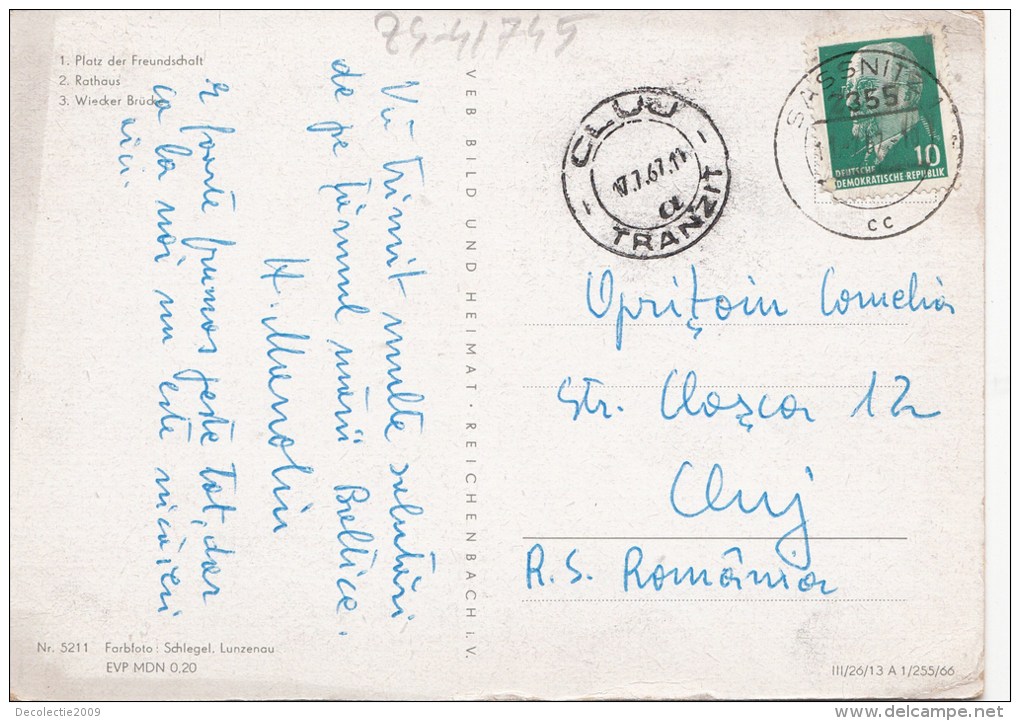 74-41745
1. Platz der Freundschaft
2. Rathaus
3. Wiecker Brücke
Vă trimit multe salutări
de pe țărmul mării Baltice.
H. Manoliu
E foarte frumos peste tot, dar
ca la noi nu este nicăieri
aici.
VEB BILD UND HEIMAT · REICHENBACH i. V.
CLUJ
17.7.67.11
α
TRANZIT
SASSNITZ 1
2355
CC
10
DEUTSCHE
DEMOKRATISCHE REPUBLIK
Oprițoiu Cornelia
Str. Cloșca 12
Cluj
R.S. România
Nr. 5211 Farbfoto: Schlegel, Lunzenau
EVP MDN 0,20
III/26/13 A 1/255/66
Decolectie2009
delcampe.net